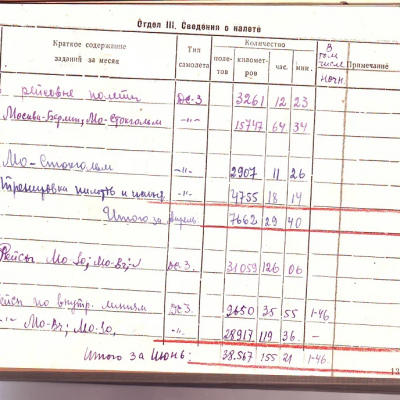 Отдел III. Сведения о налете
Краткое содержание заданий за месяц Тип самолета Количество полетов километров час. мин. В том числе ночн. Примечание
рейсовые полеты Дс-3 3261 12 23
Москва-Берлин, Мо-Стокгольм -"- 15747 64 34
Мо-Стокгольм -"- 2907 11 26
Тренировка -"- 4755 18 14
Итого за апрель 7662 29 40
Рейсы Мо- Дс 3. 31059 126 06
по внутр. линиям Дс 3. 9650 35 55 1-46
-"- -"- 28917 119 36. -
Итого за Июнь: 38.567 155 21 1-46.
13